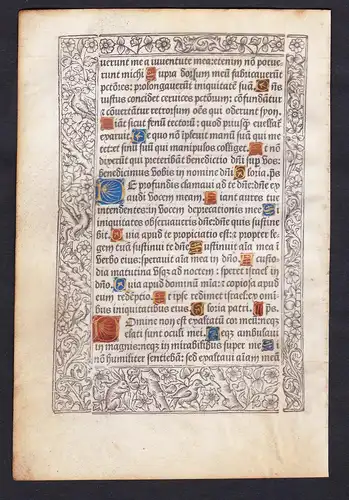 uerunt me a iuuentute mea: etenim nō potue
runt michi Supra dorsum meū fabricauerūt
pctōres: prolongauerūt iniquitatē suā. Dn̄s
iustus concidet ceruices pctōrum: cōfundātur
⁊ cōuertātur retrorsum oēs qui oderunt syon.
Fiāt sicut fenū tectorū: quod priusq̄ euellat̄
exaruit. De quo nō īpleuit manū suā qui me
tet ⁊ sinū suū qui manipulos colliget. Et
nō dixerūt qui preteribāt benedictio dn̄i sup vos:
benediximus vobis in nomine dn̄i Gloria. p̄s.
De profundis clamaui ad te dn̄e: dn̄e ex
audi vocem meam. Fiant aures tue
intendentes: in vocem deprecationis mee
Si iniquitates obseruaueris dn̄e: dn̄e quis sustine
bit. Quia apud te propiciatio est: ⁊ propter le
gem tuā sustinui te dn̄e Sustinuit aīa mea ī
verbo eius: sperauit aīa mea in dn̄o. A custo
dia matutina vsq̄ ad noctem: speret israel in
dn̄o. Quia apud dominū mīa: ⁊ copiosa apud
eum redēptio. Et ipse redimet israel: ex oīni
bus iniquitatibus eius. Gloria patri. p̄s.
Domine non est exaltatū cor meū: neq̄
elati sunt oculi mei. Neq̄ ambulaui
in magnis: neq̄ in mirabilibus super me Si
nō humiliter sentiebā: sed exaltaui aīam meā